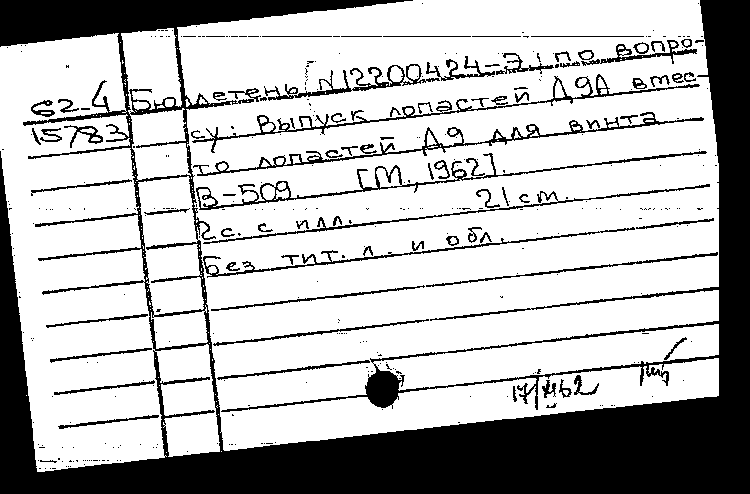 62-4 Бюллетень N12200424-Э по вопро-
15783 су: Выпуск лопастей Д9А вмес-
то лопастей Д9 для винта
В-509. [М., 1962].
2с. с илл. 21 cm.
Без тит. л. и обл.